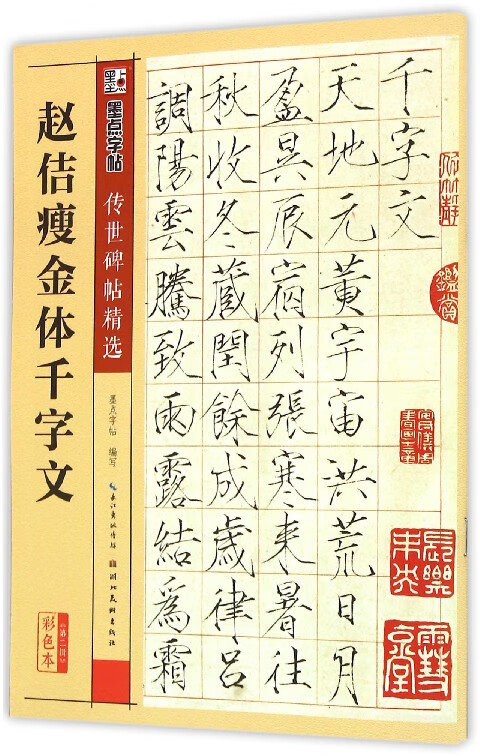 赵佶瘦金体千字文
彩色本
墨点
墨点字帖
传世碑帖精选
墨点字帖 编写
长江出版传媒
湖北美术出版社
千字文
天地元黃宇宙洪荒日月
盈昃辰宿列張寒来暑往
秋收冬藏閏餘成歲律呂
調陽雲騰致雨露結爲霜
鑑賞
長樂未央